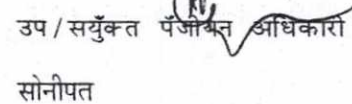 उप / सयुँक्त पँजीयन अधिकारी
सोनीपत